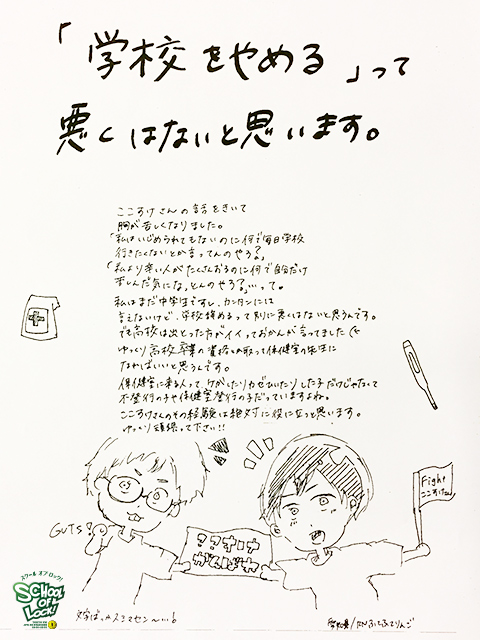 「学校をやめる」って
悪くはないと思います。
ここすけさんの話をきいて
胸が苦しくなりました。
「私はいじめられてもないのに何で毎日学校
行きたくないとか言ってんのやろ？」
「私より辛い人がたくさんおるのに何で自分だけ
苦しんだ気になっとんのやろ？」…って。
私はまだ中学生ですし、カンタンには
言えないけど、学校辞めるって別に悪くはないと思うんです。
でも高校は出とった方がイイっておかんが言ってました
ゆっくり高校卒業の資格とか取って保健室の先生に
なればいいと思うんです。
保健室に来る人って、ケガしたりカゼひいたりした子だけじゃなくて
不登校の子や保健室登校の子だっていますよね。
ここすけさんのその経験は絶対に役に立つと思います。
ゆっくり頑張って下さい!!
GUTS!
ここすけ
がんばれ
Fight
ここすけ
スクール オブ ロック!
SCHOOL
OF
LOCK!
文字ばっかスミマセン〜…
愛知県/RNふじふじりんご